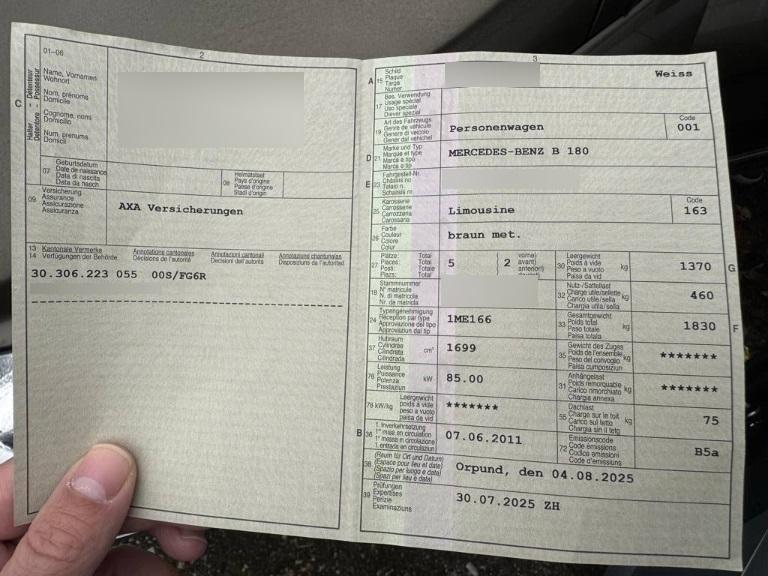 01-06
2
C
Halter
Détenteur
Detentore
Possessur
Name, Vornamen
Wohnort
Nom, prénoms
Domicile
Cognome, nomi
Domicilio
Num, prenums
Domicil
07
Geburtsdatum
Date de naissance
Data di nascita
Data da nasch.
08
Heimatstaat
Pays d'origine
Paese d'origine
Stadi d'origin
09
Versicherung
Assurance
Assicurazione
Assicuranza
AXA Versicherungen
13
14
Kantonale Vermerke
Verfügungen der Behörde
Annotations cantonales
Décisions de l'autorité
Annotazioni cantonali
Decisioni dell'autorità
Annotaziuns chantunalas
Disposiziuns da l'autoritad
30.306.223 055 00S/FG6R
3
A
15
Schild
Plaque
Targa
Numer
Weiss
17
Bes. Verwendung
Usage spécial
Uso speciale
Diever spezial
19
Art des Fahrzeugs
Genre de véhicule
Genere di veicolo
Gener dal vehichel
Personenwagen
Code
001
D
21
Marke und Typ
Marque et type
Marca e tipo
Marca e tip
MERCEDES-BENZ B 180
E
23
Fahrgestell-Nr.
Châssis no
Telaio n.
Schassis nr.
25
Karosserie
Carrosserie
Carrozzeria
Carossaria
Limousine
Code
163
26
Farbe
Couleur
Colore
Colur
braun met.
27
Plätze:
Places:
Posti:
Plazs:
Total
Total
Totale
Total
5
2
vorne)
avant)
anteriori)
30
Leergewicht
Poids à vide
Peso a vuoto
Paisa da vid
kg
1370
G
18
Stammnummer
N° matricule
N. di matricola
Nr. da matricla
32
Nutz-/Sattellast
Charge utile/sellette
Carico utile/sella
Chargia utila/sella
kg
460
24
Typengenehmigung
Réception par type
Approvazione del tipo
Approvaziun dal tip
1ME166
33
Gesamtgewicht
Poids total
Peso totale
Paisa totala
kg
1830
F
37
Hubraum
Cylindrée
Cilindrata
Cilindrada
cm³
1699
35
Gewicht des Zuges
Poids de l'ensemble
Peso del convoglio
Paisa cumposiziun
kg
*******
76
Leistung
Puissance
Potenza
Prestaziun
kW
85.00
31
Anhängelast
Poids remorquable
Carico rimorchiato
Chargia annexa
kg
*******
78 kW/kg
Leergewicht
poids à vide
peso a vuoto
paisa da vid
*******
55
Dachlast
Charge sur le toit
Carico sul tetto
Chargia sin il tetg
kg
75
B
36
1. Inverkehrsetzung
1re mise en circulation
1a messa in circolazione
1. entrada en circulaziun
07.06.2011
72
Emissionscode
Code émissions
Codice emissioni
Code d'emissiuns
B5a
38
(Raum für Ort und Datum)
(Espace pour lieu et date)
(Spazio per luogo e data)
(Spazi per lieu e data)
Orpund, den 04.08.2025
39
Prüfungen
Expertises
Perizie
Examinaziuns
30.07.2025 ZH